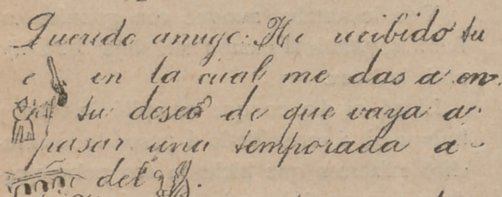 Querido amigo: He recibido tu
c en la cual me das a en-
tu deseo de que vaya a
pasar una temporada a
del